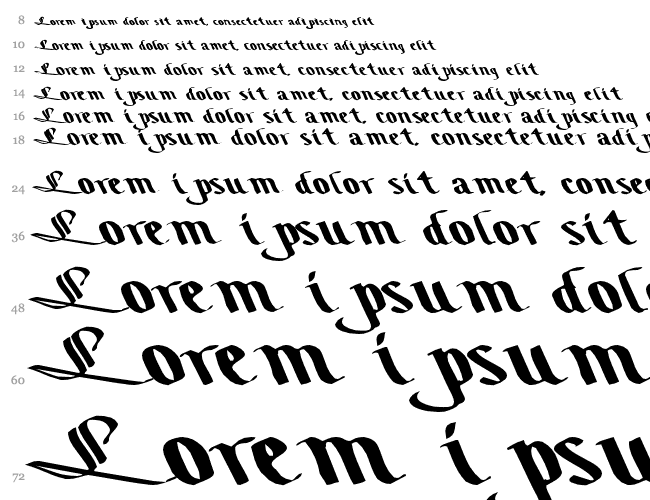 8 Lorem ipsum dolor sit amet, consectetuer adipiscing elit
10 Lorem ipsum dolor sit amet, consectetuer adipiscing elit
12 Lorem ipsum dolor sit amet, consectetuer adipiscing elit
14 Lorem ipsum dolor sit amet, consectetuer adipiscing elit
16 Lorem ipsum dolor sit amet, consectetuer adipiscing e
18 Lorem ipsum dolor sit amet, consectetuer adip
24 Lorem ipsum dolor sit amet, consec
36 Lorem ipsum dolor sit
48 Lorem ipsum dol
60 Lorem ipsum
72 Lorem ipsu